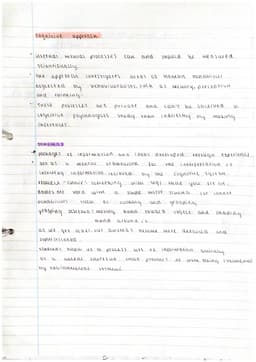 cognitive approach
- internal mental processes can and should be measured
scientifically.
- the approach investigates areas of human behaviour
neglected by behaviourists, such as memory, perception
and thinking.
- These processes are private and can't be observed so
cognitive psychologists study them indirectly by making
inferences.
schemas
packages of information and ideas developed through experience.
act as a mental framework for the interpretation of
incoming information received by the cognitive system.
babies are born with a simple motor schema for innate
behaviours such as sucking and grasping
grasping schema: moving hand towards object and shaping
hand around it.
as we get older, our schemas become more detailed and
sophisticated.
schemas help us to process lots of information quickly
as a mental shortcut, that prevents us from being overwhelmed
by environmental stimuli